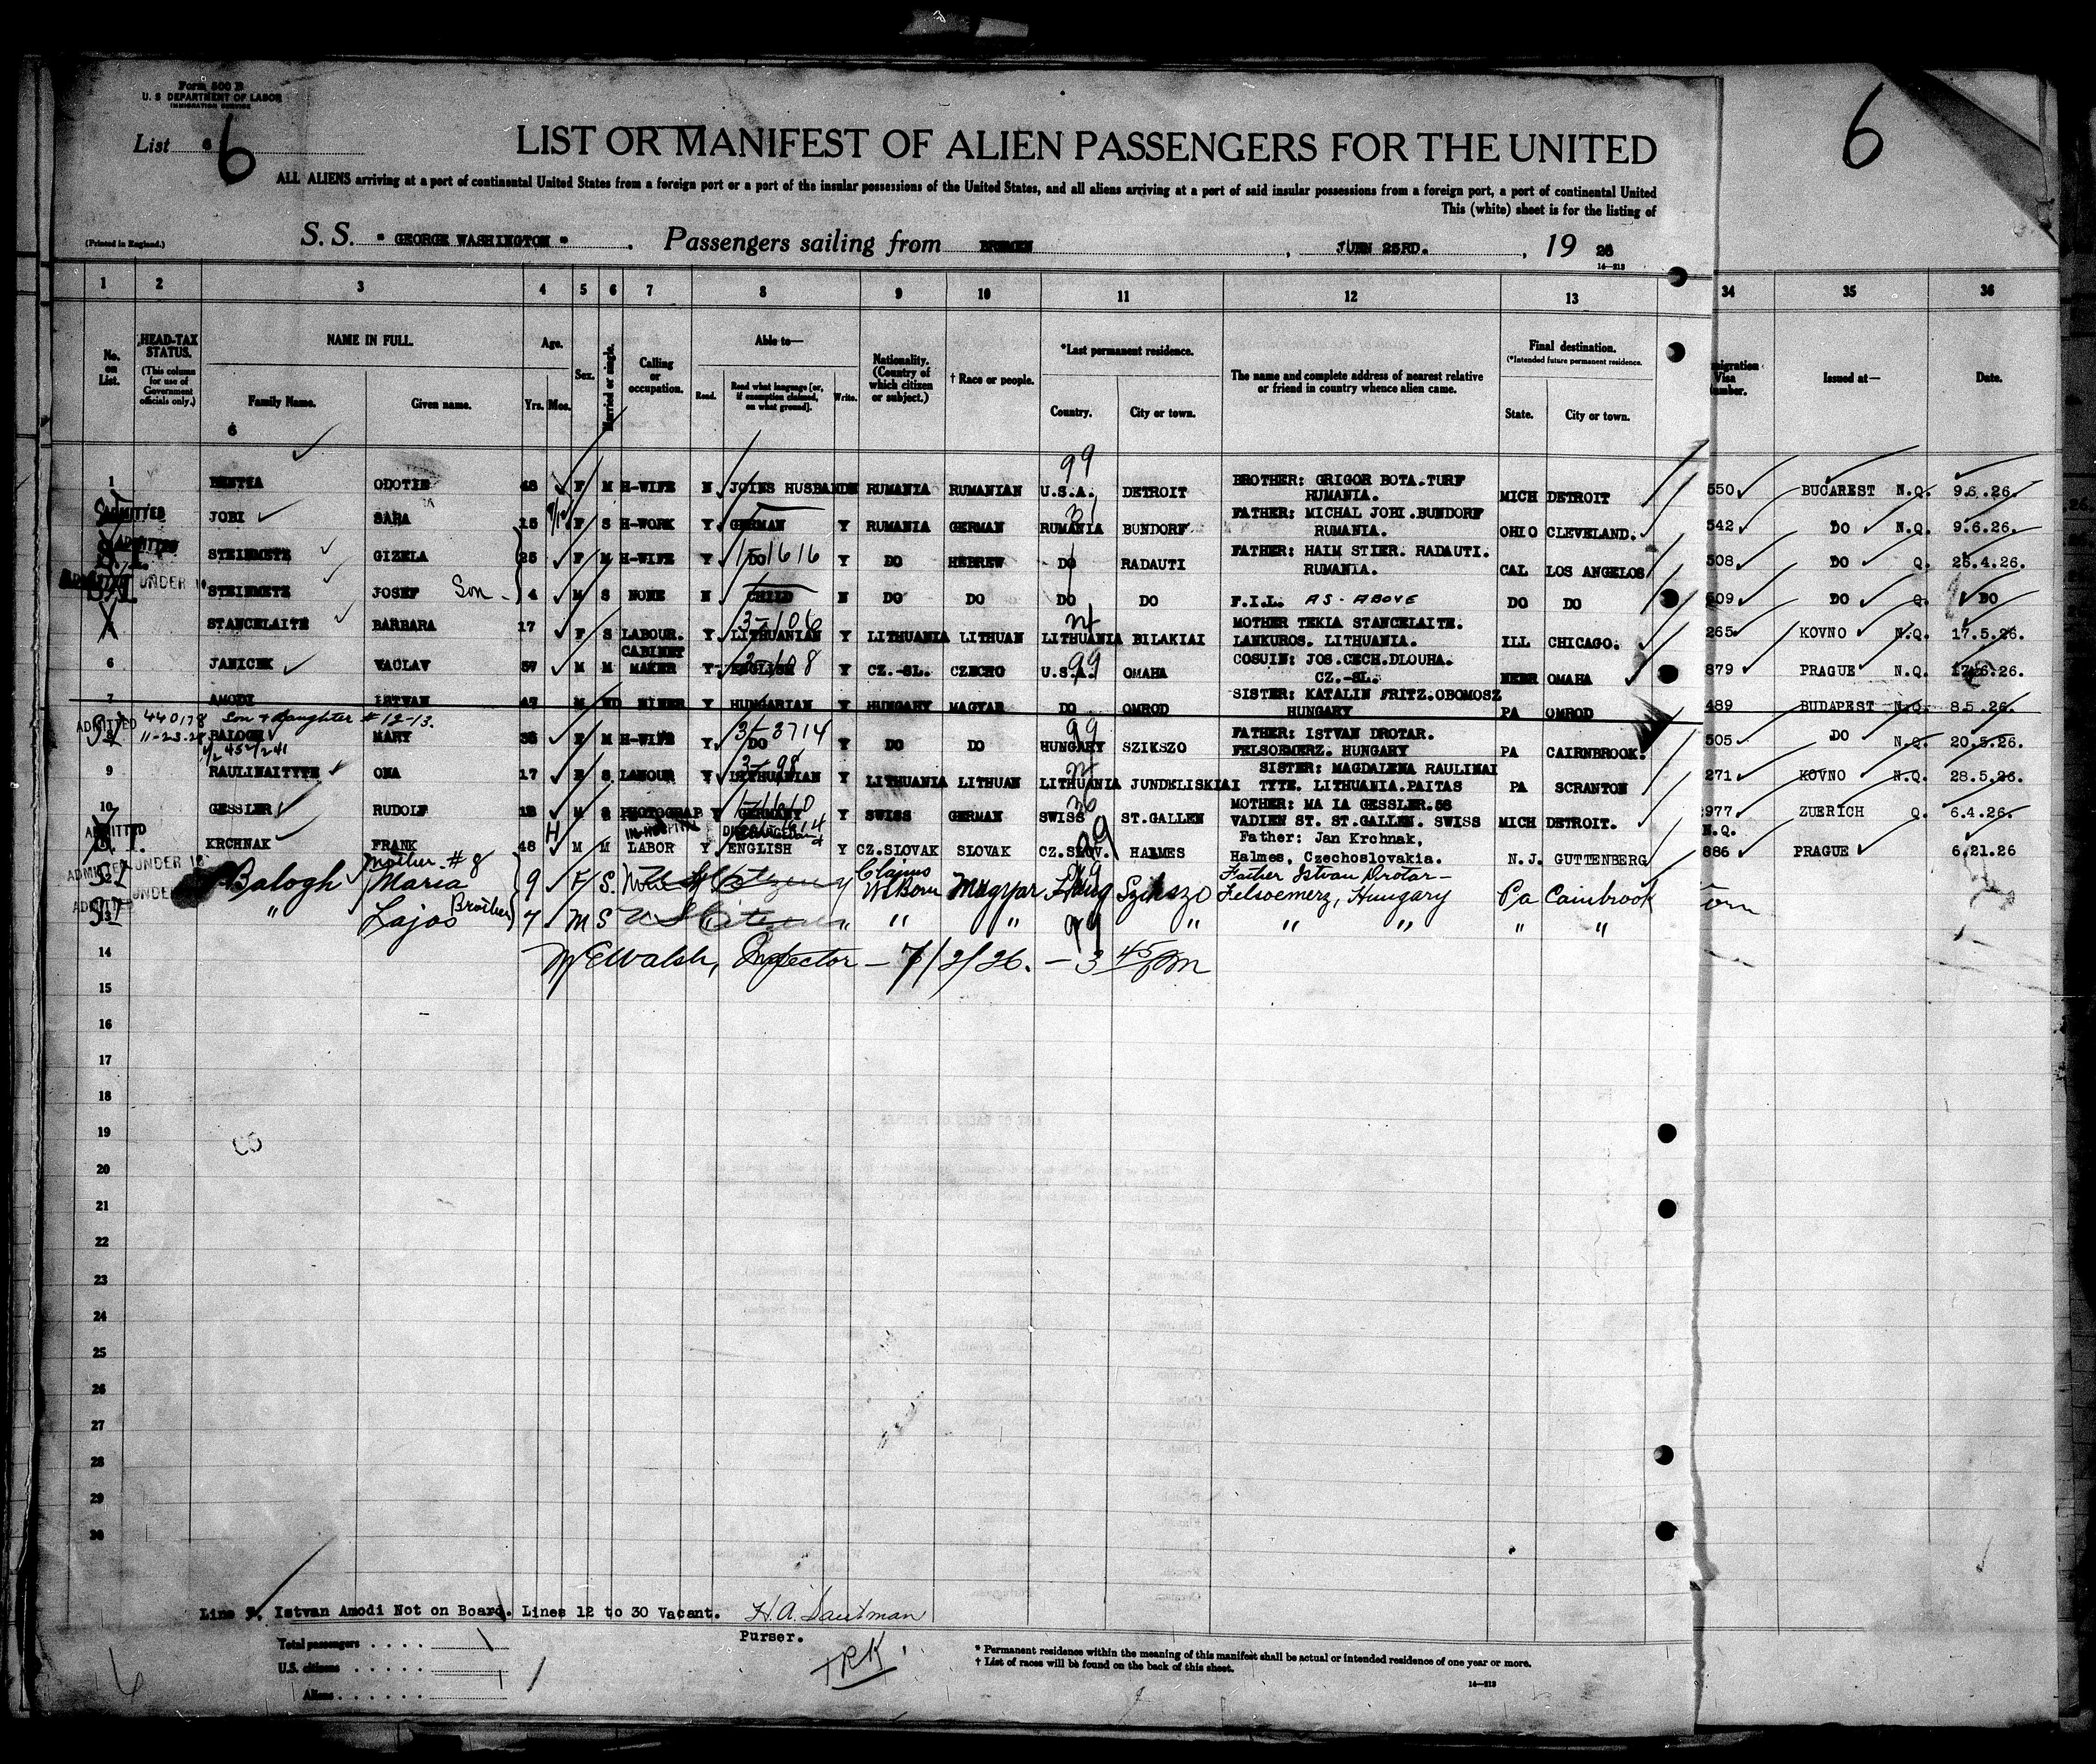 Form 500 B
U. S DEPARTMENT OF LABOR
IMMIGRATION SERVICE
List 6
6
LIST OR MANIFEST OF ALIEN PASSENGERS FOR THE UNITED
ALL ALIENS arriving at a port of continental United States from a foreign port or a port of the insular possessions of the United States, and all aliens arriving at a port of said insular possessions from a foreign port, a port of continental United
This (white) sheet is for the listing of
(Printed in England.)
S. S. " GEORGE WASHINGTON " . Passengers sailing from BREMEN , JUEN 23RD. , 19 26
14—213
1 2 3 4 5 6 7 8 9 10 11 12 13 34 35 36
No. on List.
HEAD-TAX STATUS.
(This column for use of Government officials only.)
NAME IN FULL.
Family Name. Given name.
Age.
Yrs. Mos.
Sex.
Married or single.
Calling or occupation.
Able to—
Read. Read what language [or, if exemption claimed, on what ground]. Write.
Nationality. (Country of which citizen or subject.)
† Race or people.
*Last permanent residence.
Country. City or town.
The name and complete address of nearest relative or friend in country whence alien came.
Final destination.
(*Intended future permanent residence.
State. City or town.
Visa
Issued at—
Date.
6
99
1 ODOTIE F M H-WIFE N JOINS HUSBAND N RUMANIA RUMANIAN U.S.A. DETROIT BROTHER: GRIGOR BOTA.TURF RUMANIA. MICH DETROIT 550 BUCAREST N.Q. 9.6.26.
ADMITTED JOBI SARA 15 F S H-WORK Y GERMAN Y RUMANIA GERMAN RUMANIA BUNDORF FATHER: MICHAL JOBI.BUNDORF RUMANIA. OHIO CLEVELAND. 542 DO N.Q. 9.6.26.
ADMITTED STEINMETZ GIZELA 25 F M H-WIFE Y DO Y DO HEBREW DO RADAUTI FATHER: HAIM STIER. RADAUTI. RUMANIA. CAL LOS ANGELOS 508 DO Q. 26.4.26.
UNDER STEINMETZ JOSEF Son 4 M S NONE N CHILD N DO DO DO DO F.I.L. AS - ABOVE DO DO 509 DO Q. DO
STANCELAITE BARBARA 17 F S LABOUR. Y LITHUANIAN Y LITHUANIA LITHUAN LITHUANIA BILAKIAI MOTHER TEKIA STANCELAITE. LANKUROS. LITHUANIA. ILL CHICAGO. 265 KOVNO N.Q. 17.5.26.
6 JANICEK VACLAV 57 M M CABINET MAKER Y ENGLISH Y CZ.-SL. CZECHO U.S.A. OMAHA COSUIN: JOS.CECH.DLOUHA. CZ.-SL. NEBR OMAHA 879 PRAGUE N.Q.
7 AMODI ISTVAN 47 M WD MINER Y HUNGARIAN Y HUNGARY MAGYAR DO OMROD SISTER: KATALIN FRITZ.OBOMOSZ HUNGARY PA OMROD 489 BUDAPEST N.Q. 8.5.26.
ADMITTED 440178 Son & daughter # 12-13.
8 BALOGH MARY 35 F M H-WIFE Y DO 3-3714 Y DO DO HUNGARY SZIKSZO FATHER: ISTVAN DROTAR. FELSOEMERZ. HUNGARY PA CAIRNBROOK. 505 DO N.Q. 20.5.26.
9 RAULINAITYTE ONA 17 F S LABOUR Y LITHUANIAN Y LITHUANIA LITHUAN LITHUANIA JUNDELISKIAI SISTER: MAGDALENA RAULINAI TYTE. LITHUANIA.PAITAS PA SCRANTON 271 KOVNO N.Q. 28.5.26.
10 GESSLER RUDOLF M S PHOTOGRAP Y GERMANY Y SWISS GERMAN SWISS ST.GALLEN MOTHER: MA IA GESSLER.58 VADIEN ST. ST.GALLEN. SWISS MICH DETROIT. 977 ZUERICH Q. 6.4.26.
ADMITTED KRCHNAK FRANK 48 M M IN-HOSPITAL LABOR Y ENGLISH Y CZ.SLOVAK SLOVAK CZ.SLOV. HALMES Father: Jan Krchnak, Halmes, Czechoslovakia. N.J. GUTTENBERG N.Q. 886 PRAGUE 6.21.26
ADMITTED UNDER Balogh Mother # 8 Maria 9 F S. None US Citizen y Claims US Born Magyar Hung Szikszo Father Istvan Drotar— Felsoemerz, Hungary Pa Cairnbrook
ADMITTED UNDER 13 " Lajos Brother 7 M S US Citizen " " " 99 " " " " "
14 M E Walsh, Inspector — 7/2/26. — 3 45 PM
15
16
17
18
19
20
21
22
23
24
25
26
27
28
29
30
Line 7, Istvan Amodi Not on Board. Lines 12 to 30 Vacant. H. A. Sautman
Purser.
Total passengers
U.S. citizens
Aliens
TRK
* Permanent residence within the meaning of this manifest shall be actual or intended residence of one year or more.
† List of races will be found on the back of this sheet.
14—213